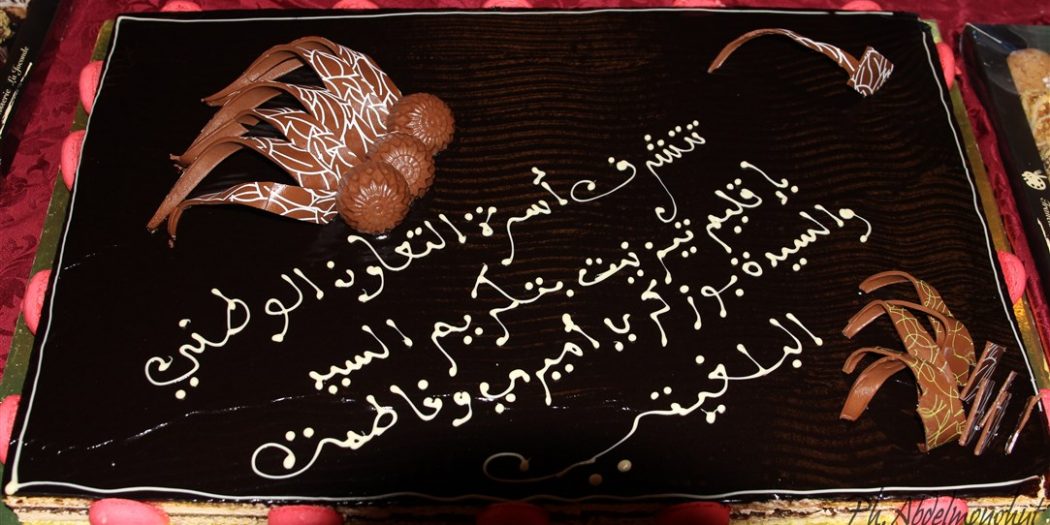 تتشرف أسرة التعاون الوطني
بإقليم تيزنيت بتكريم السيد
والسيدة بوزكرياء أميري وفاطمة
البلغيتي
Ph. Abdelmonohuti